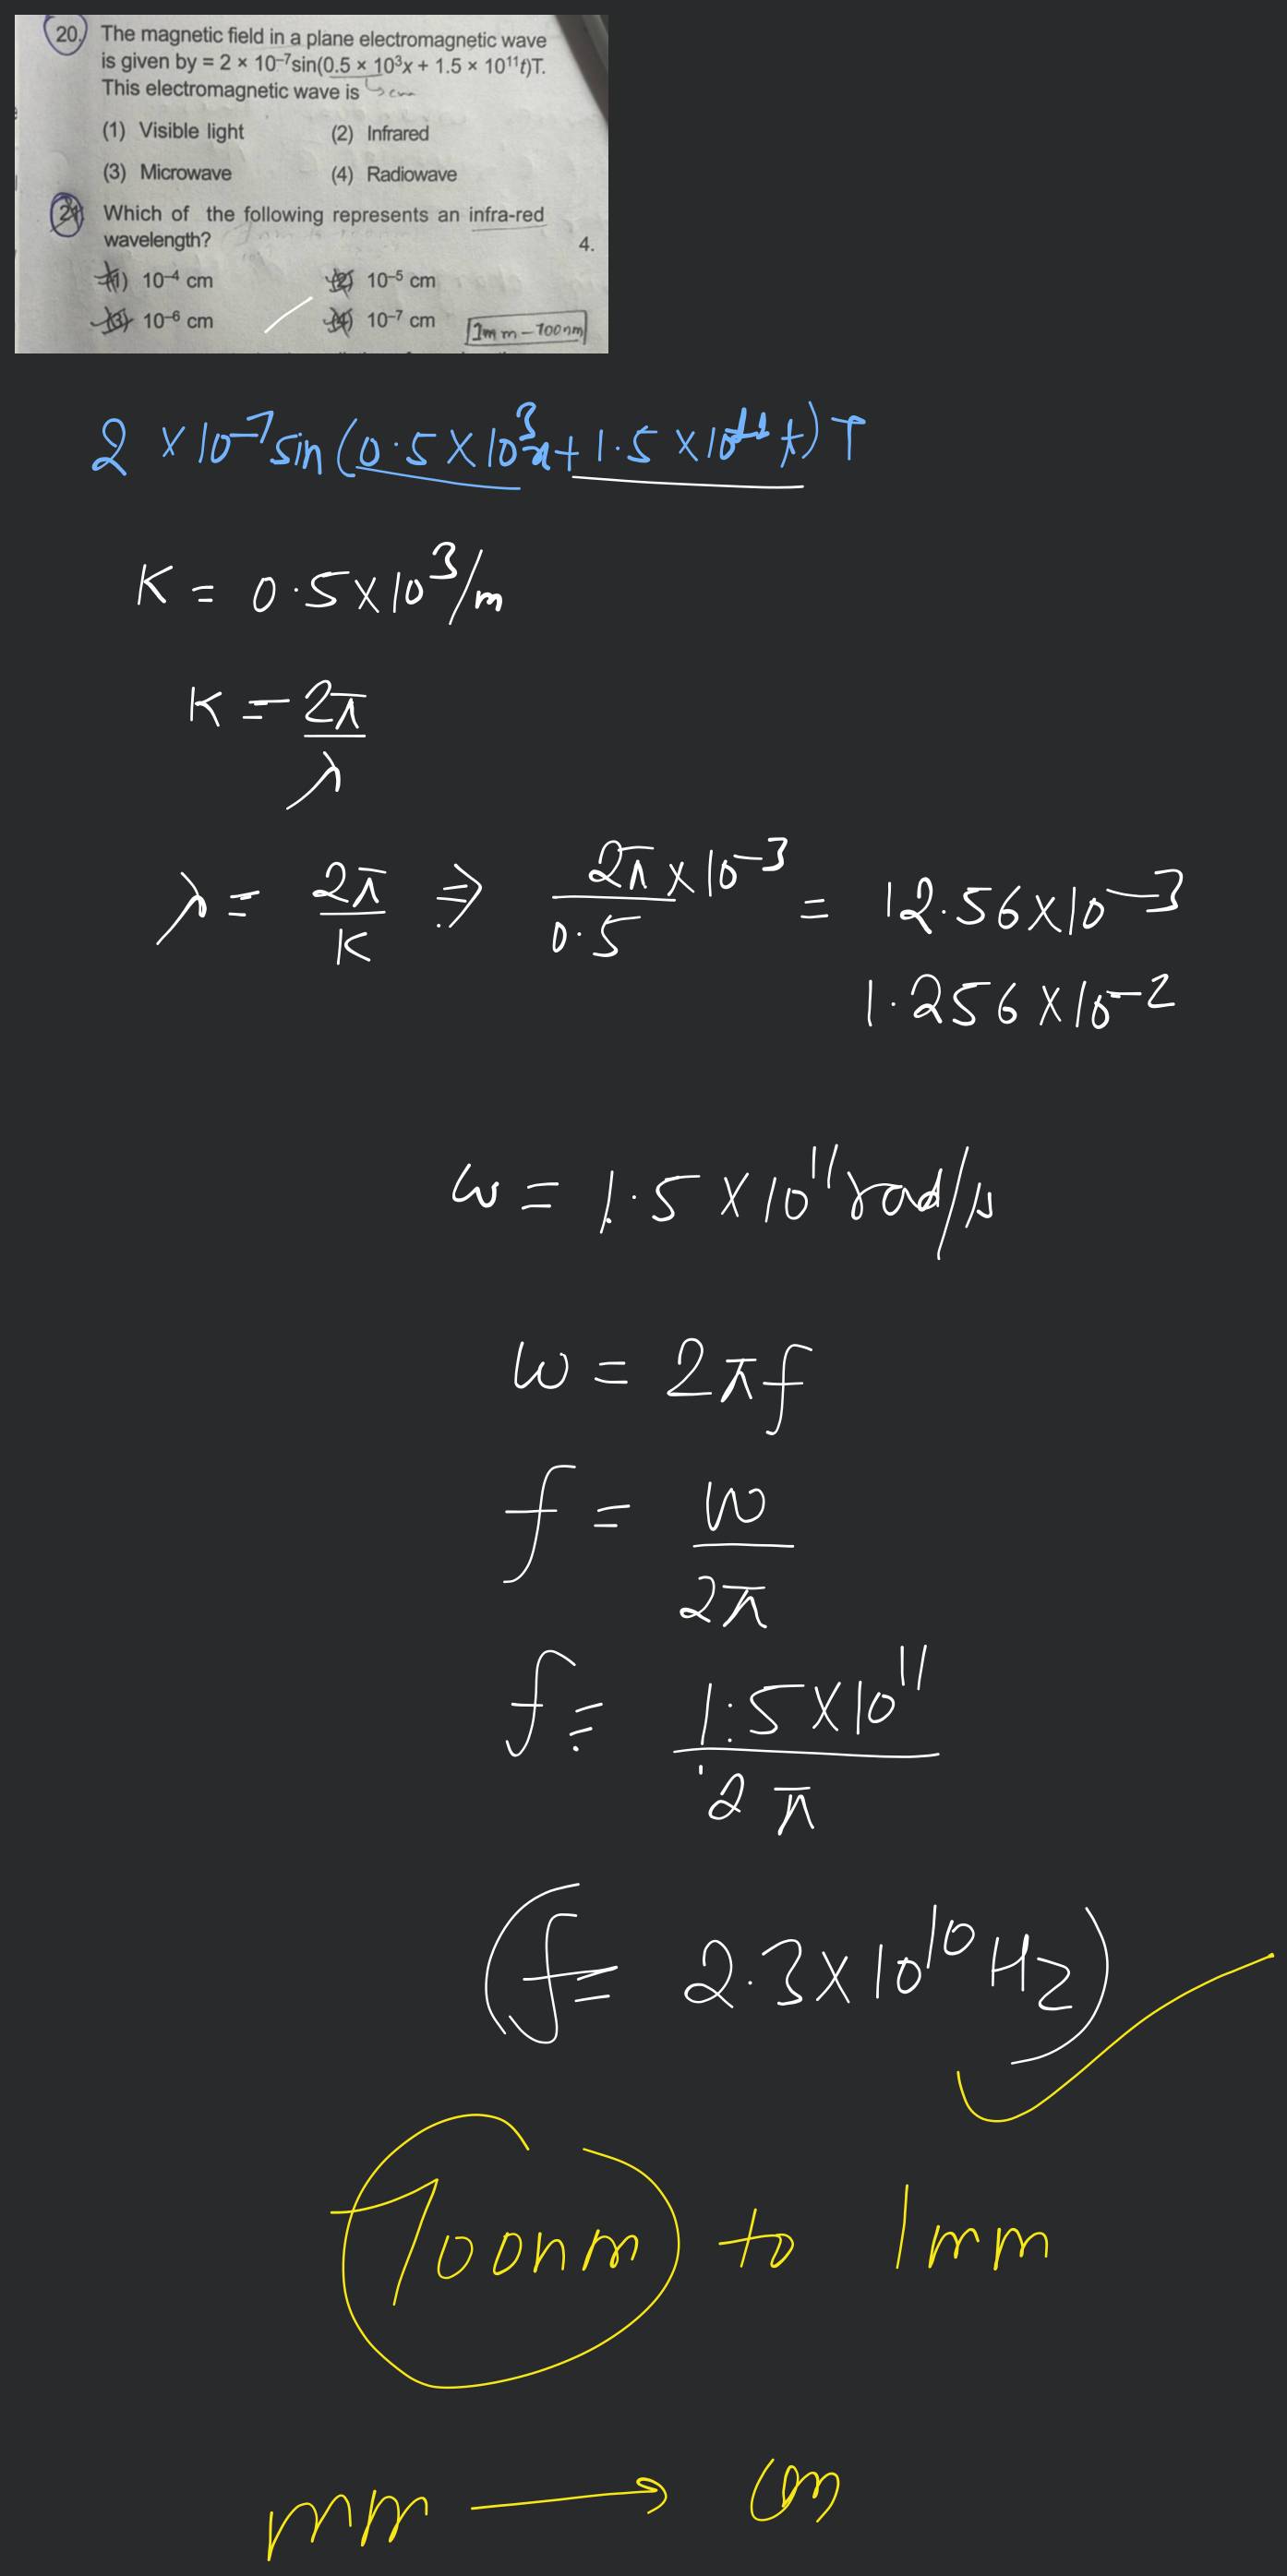 20. The magnetic field in a plane electromagnetic wave
is given by = 2 × 10⁻⁷sin(0.5 × 10³x + 1.5 × 10¹¹t)T.
This electromagnetic wave is
(1) Visible light (2) Infrared
(3) Microwave (4) Radiowave
21 Which of the following represents an infra-red
wavelength?
4.
(1) 10⁻⁴ cm (2) 10⁻⁵ cm
(3) 10⁻⁶ cm (4) 10⁻⁷ cm
1mm – 700nm
2 × 10⁻⁷ sin(0.5 × 10³x + 1.5 × 10¹¹ t) T
K = 0.5 × 10³/m
K = 2π/λ
λ = 2π/K ⇒ 2π × 10⁻³/0.5 = 12.56 × 10⁻³
1.256 × 10⁻²
ω = 1.5 × 10¹¹ rad/s
ω = 2πf
f = ω/2π
f = 1.5 × 10¹¹/2π
(f = 2.3 × 10¹⁰ Hz)
700nm to 1mm
mm → cm